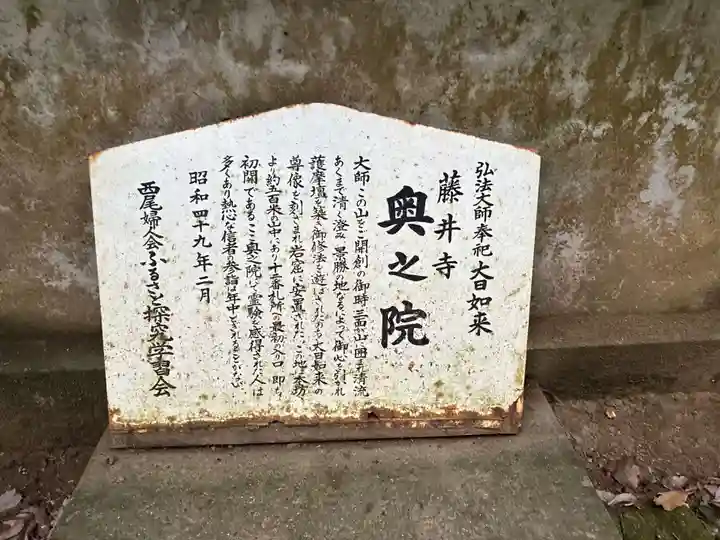 弘法大師奉祀 大日如来
藤井寺
奥之院
大師この山をご開創の御時 三面山に囲まれ清流
あくまで清く澄み 景勝の地なるによって御心をひかれ
護摩壇を築き御修法を遊ばされたあと大日如来の
尊像を刻まれ岩窟に安置された、この地は本坊
より約五百米の山中にあり十一番札所の最初の入口、即ち
初開である ここ奥之院にて霊験を感得された人は
多くあり熱心な信者の参詣は年中とぎれることがない
昭和四十九年二月
西尾婦人会ふるさと探究学習会